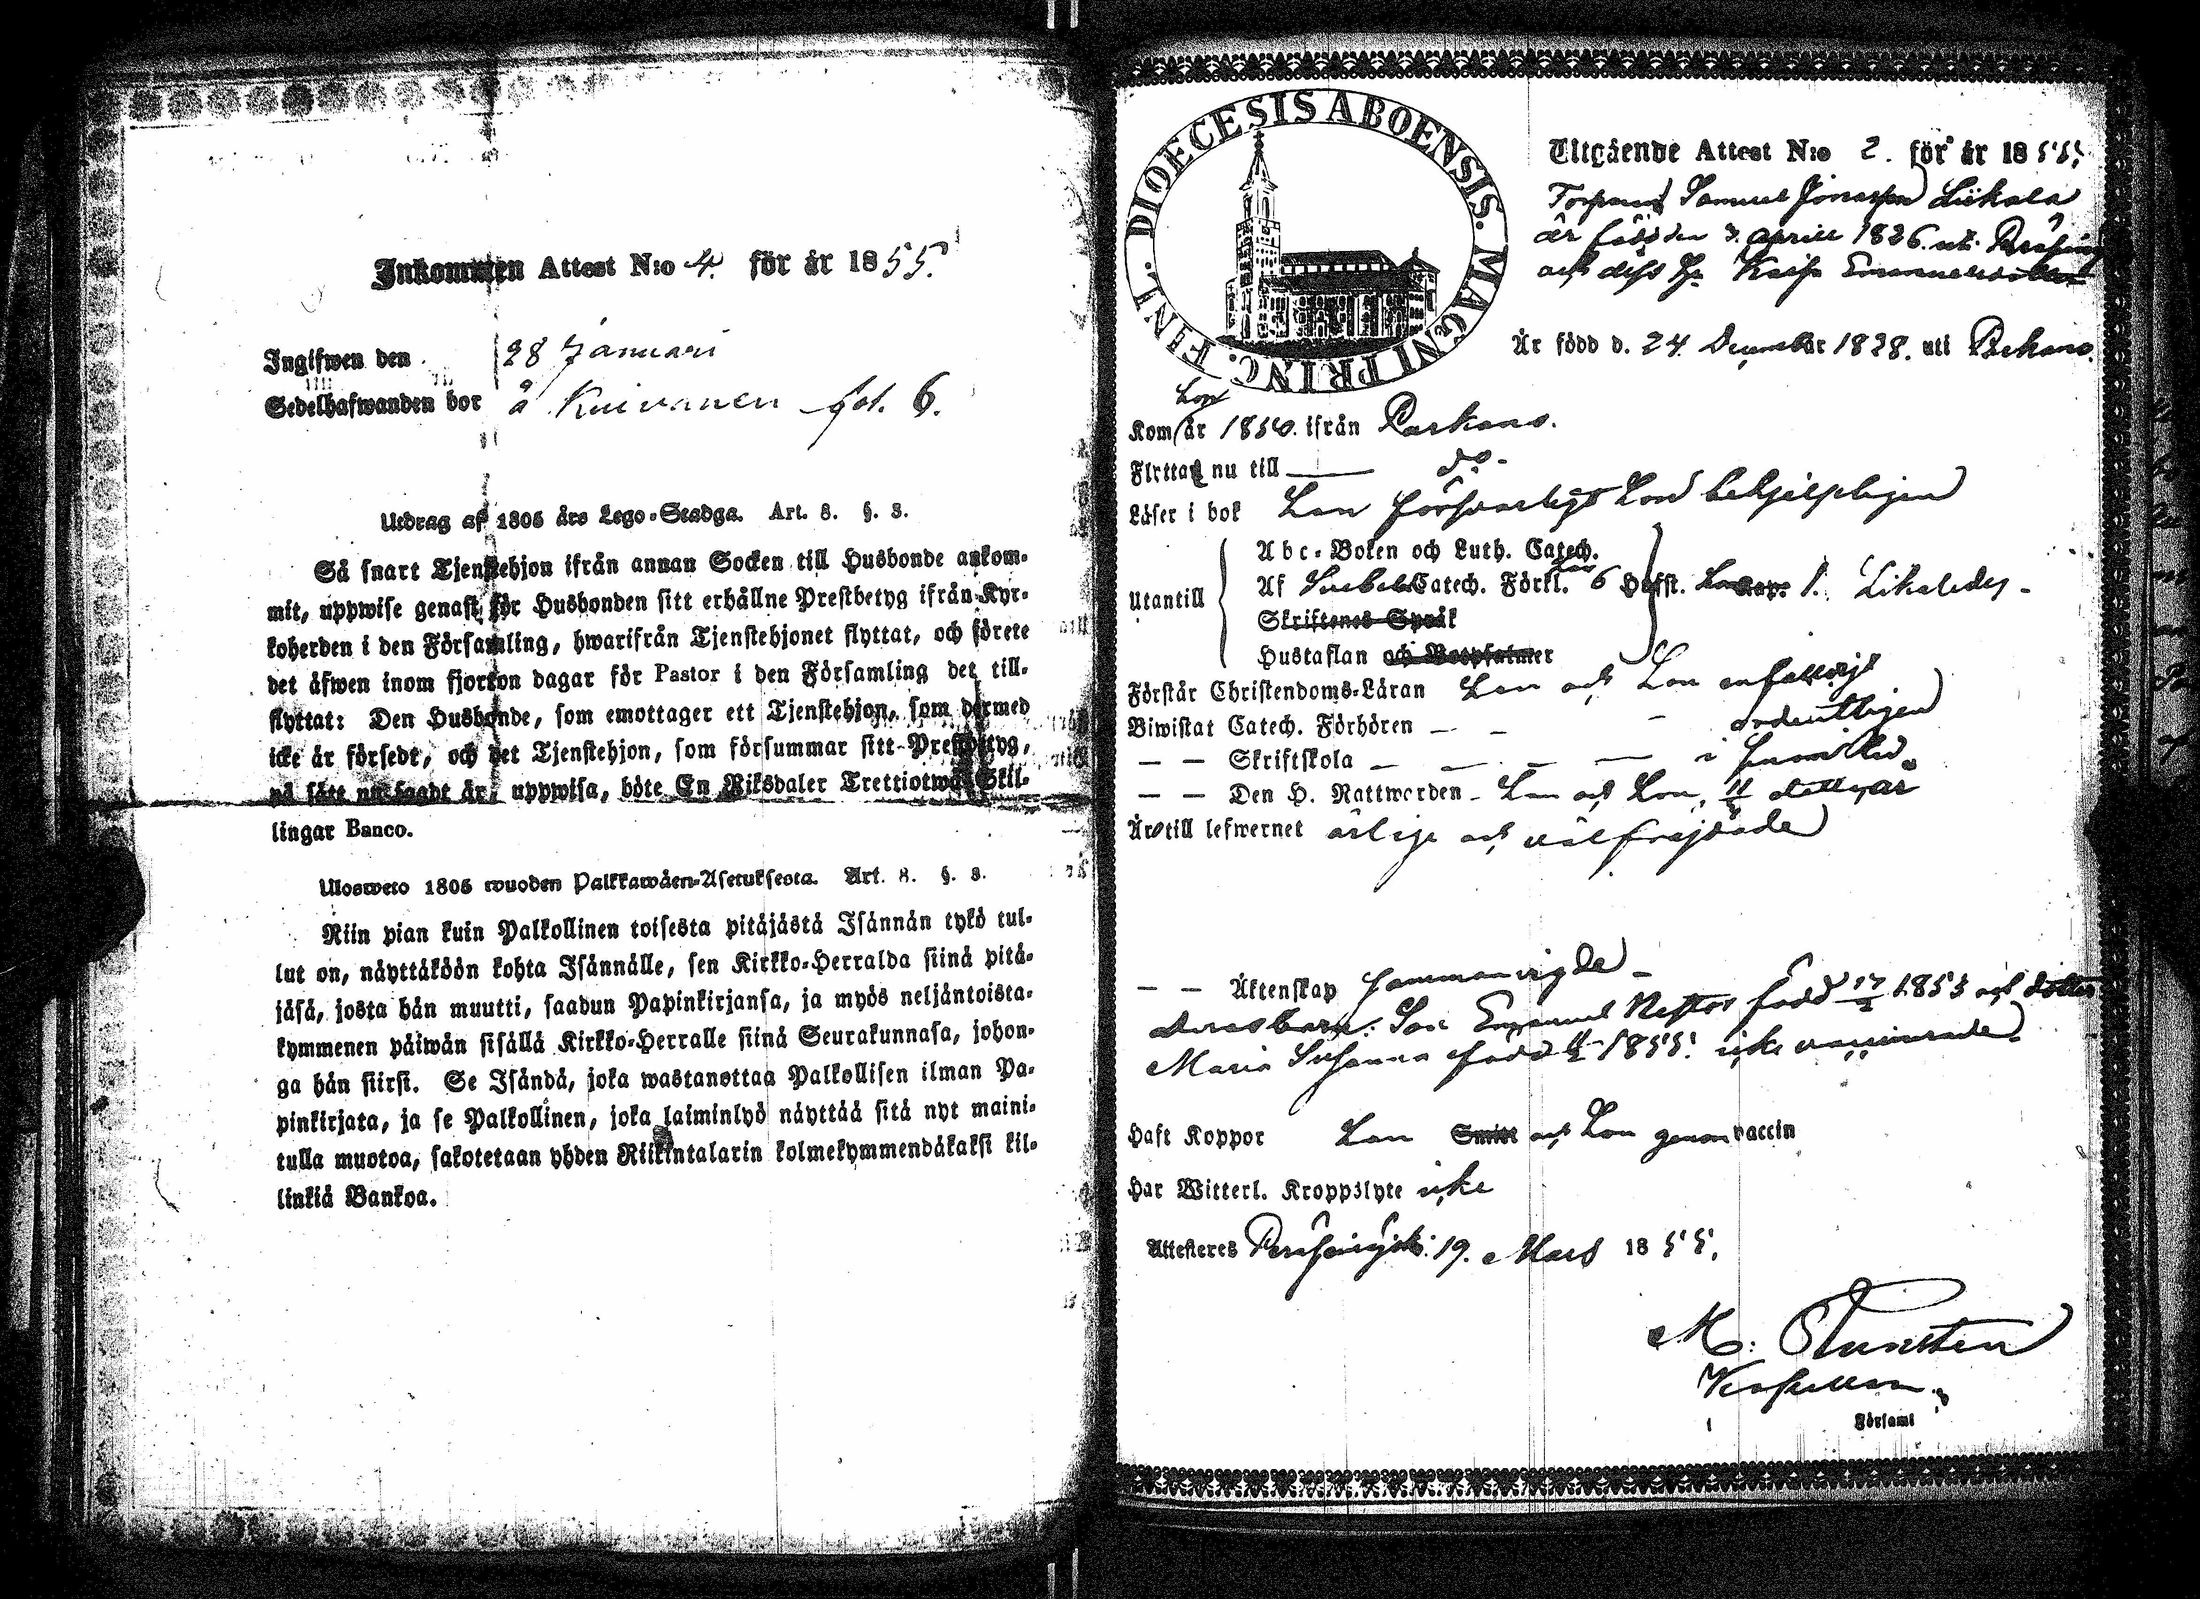 Inkommen Attest N:o 4. för år 1855.
Ingifwen den 28 Januari
Sedelhafwanden bor å Kuivanen fol. 6.
Utdrag af 1805 års Lego-Stadga. Art. 8. §. 3.
Så snart Tjenstehjon ifrån annan Socken till Husbonde ankom-
mit, uppwise genast för Husbonden sitt erhållne Prestbetyg ifrån Kyr-
koherden i den Församling, hwarifrån Tjenstehjonet flyttat, och förete
det äfwen inom fjorton dagar för Pastor i den Församling det till-
flyttat: Den Husbonde, som emottager ett Tjenstehjon, som dermed
icke är försedt, och det Tjenstehjon, som försummar sitt Prestbetyg,
på sätt nu sagdt är, uppwisa, böte En Riksdaler Trettiotwå Skil-
lingar Banco.
Ulosweto 1805 wuoden Palkkawäen-Asetuksesta. Art. 8. §. 3.
Niin pian kuin Palkollinen toisesta pitäjästä Isännän tykö tul-
lut on, näyttäköön kohta Isännälle, sen Kirkko-Herralda siinä pitä-
jäsä, josta hän muutti, saadun Papinkirjansa, ja myös neljäntoista-
kymmenen päiwän sisällä Kirkko-Herralle siinä Seurakunnasa, johon-
ga hän siirsi. Se Isändä, joka wastanottaa Palkollisen ilman Pa-
pinkirjata, ja se Palkollinen, joka laiminlyö näyttää sitä nyt maini-
tulla muotoa, sakotetaan yhden Riikintalarin kolmekymmendäkaksi kil-
linkiä Bankoa.
DIOECESIS ABOENSIS. MAGNI PRINC. FINL.
Utgående Attest N:o 2. för år 1855.
Samuel Jonasson Liikala
är född den 3. April 1826. uti
och dess Hu Kajsa Emanuelsdotter
Är född d. 24. December 1828. uti Parkano.
hon
Kom år 1850. ifrån Parkano.
Flyttar nu till — d:o -
Läser i bok Han försvarligt Hon behjelpligen
Utantill
Abc-Boken och Luth. Catech.
Af Svebelii Catech. Förkl. han 6 Hufst. Hon Kap. 1. Likaledes -
Skriftenes Språk
Hustaflan och Botpsalmer
Förstår Christendoms-Läran Han och Hon enfaldigt
Biwistat Catech. Förhören — - - ordentligen
— — Skriftskola — — — — i
— — Den H. Nattwarden - Han och Hon, detta år
Äro till lefwernet ärlige och välfrejdade
— — Äktenskap sammanvigde -
Deras barn: Son Emanuel Nestor född 1853 och dotter
Maria Susanna född 1855. icke vaccinerade
Haft Koppor Han Smitt och Hon genom vaccin
Har Witterl. Kroppslyte icke
Attesteres 19. Mars 1855.
M:
Kapellan.
Församl